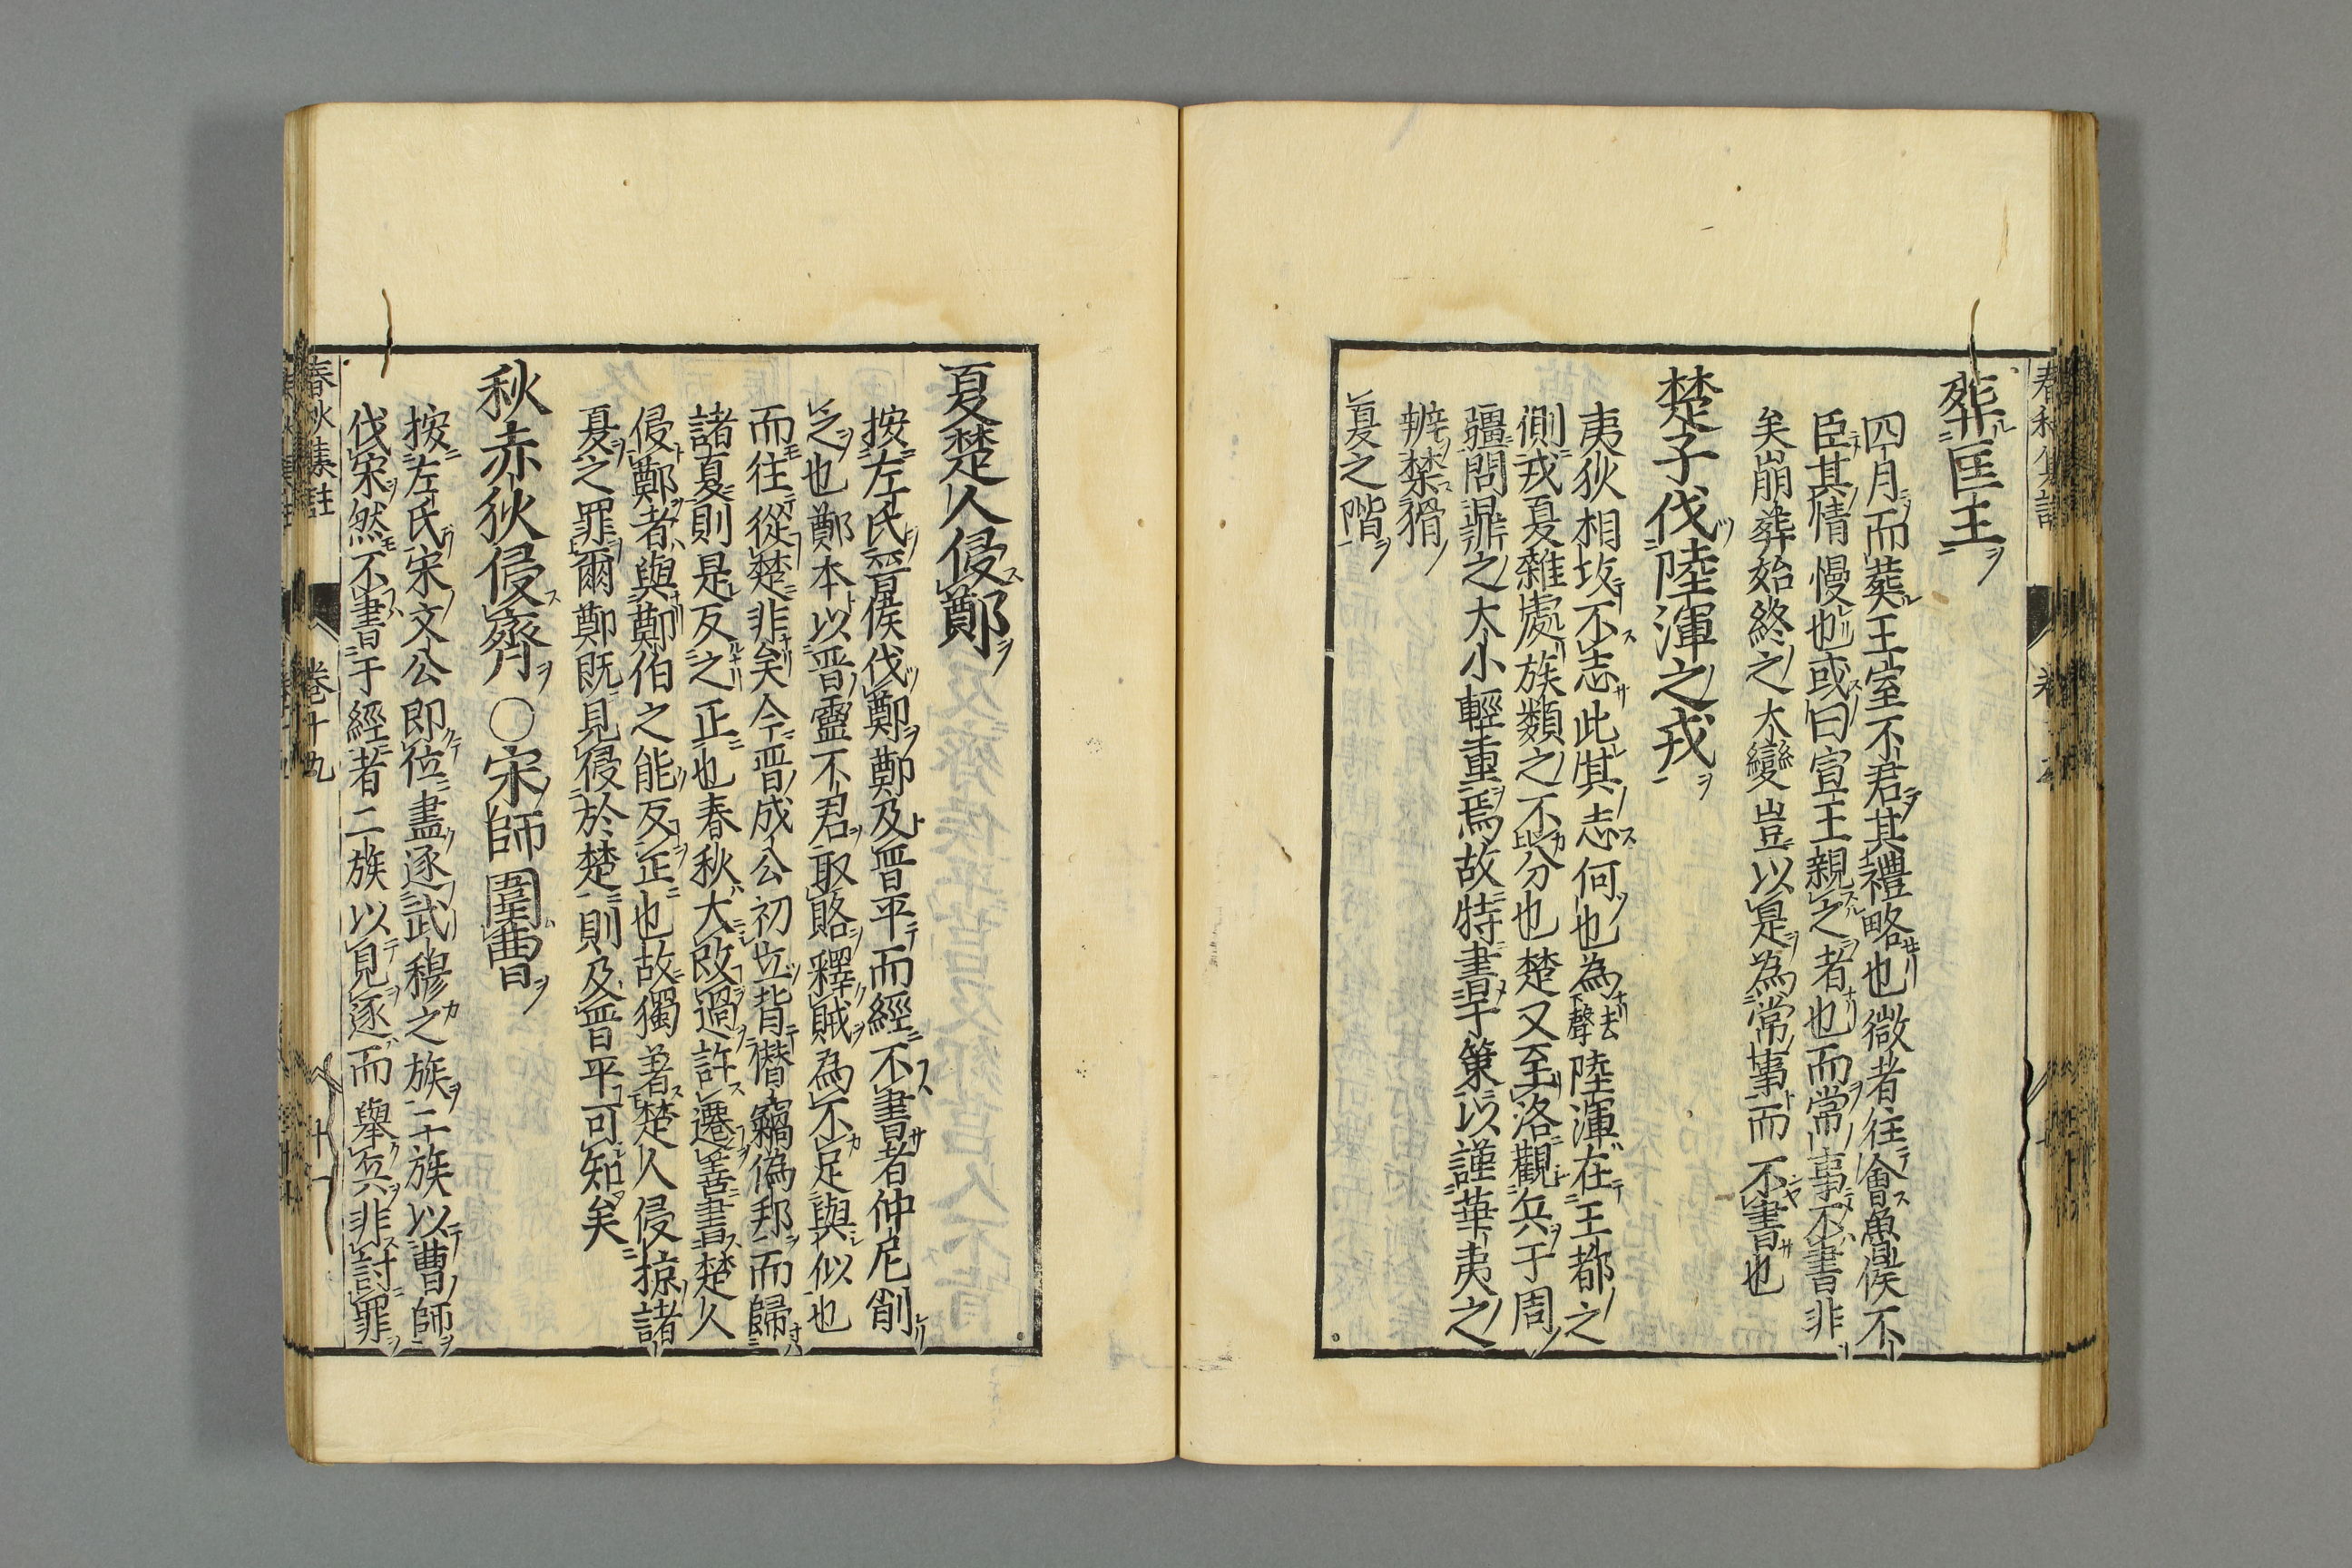 葬匡王
四月而葬王室不君其禮略也微者往會魯侯不
臣其情慢也或曰宣王親之者也而常事不書非
矣崩葬始終之大變豈以是為常事而不書也
楚子伐陸渾之戎
夷狄相攻不志此其志何也為去聲陸渾在王都之
側戎夏雜處族類之不分也楚又至洛觀兵于周
疆問鼎之大小輕重焉故特書于策以謹華夷之
辨禁猾
夏之階
夏楚人侵鄭
按左氏晉侯伐鄭鄭及晉平而經不書者仲尼削
之也鄭本以晉靈不君取賂釋賊為不足與似也
而往從楚非矣今晉成公初立背僣竊偽邦而歸
諸夏則是反之正也春秋大改過許遷善書楚人
侵鄭者與鄭伯之能反正也故獨著楚人侵掠諸
夏之罪爾鄭既見侵於楚則及晉平可知矣
秋赤狄侵齊○宋師圍曹
按左氏宋文公即位盡逐武穆之族二族以曹師
伐宋然不書于經者二族以見逐而舉兵非討罪
春秋集註 卷十九 十一